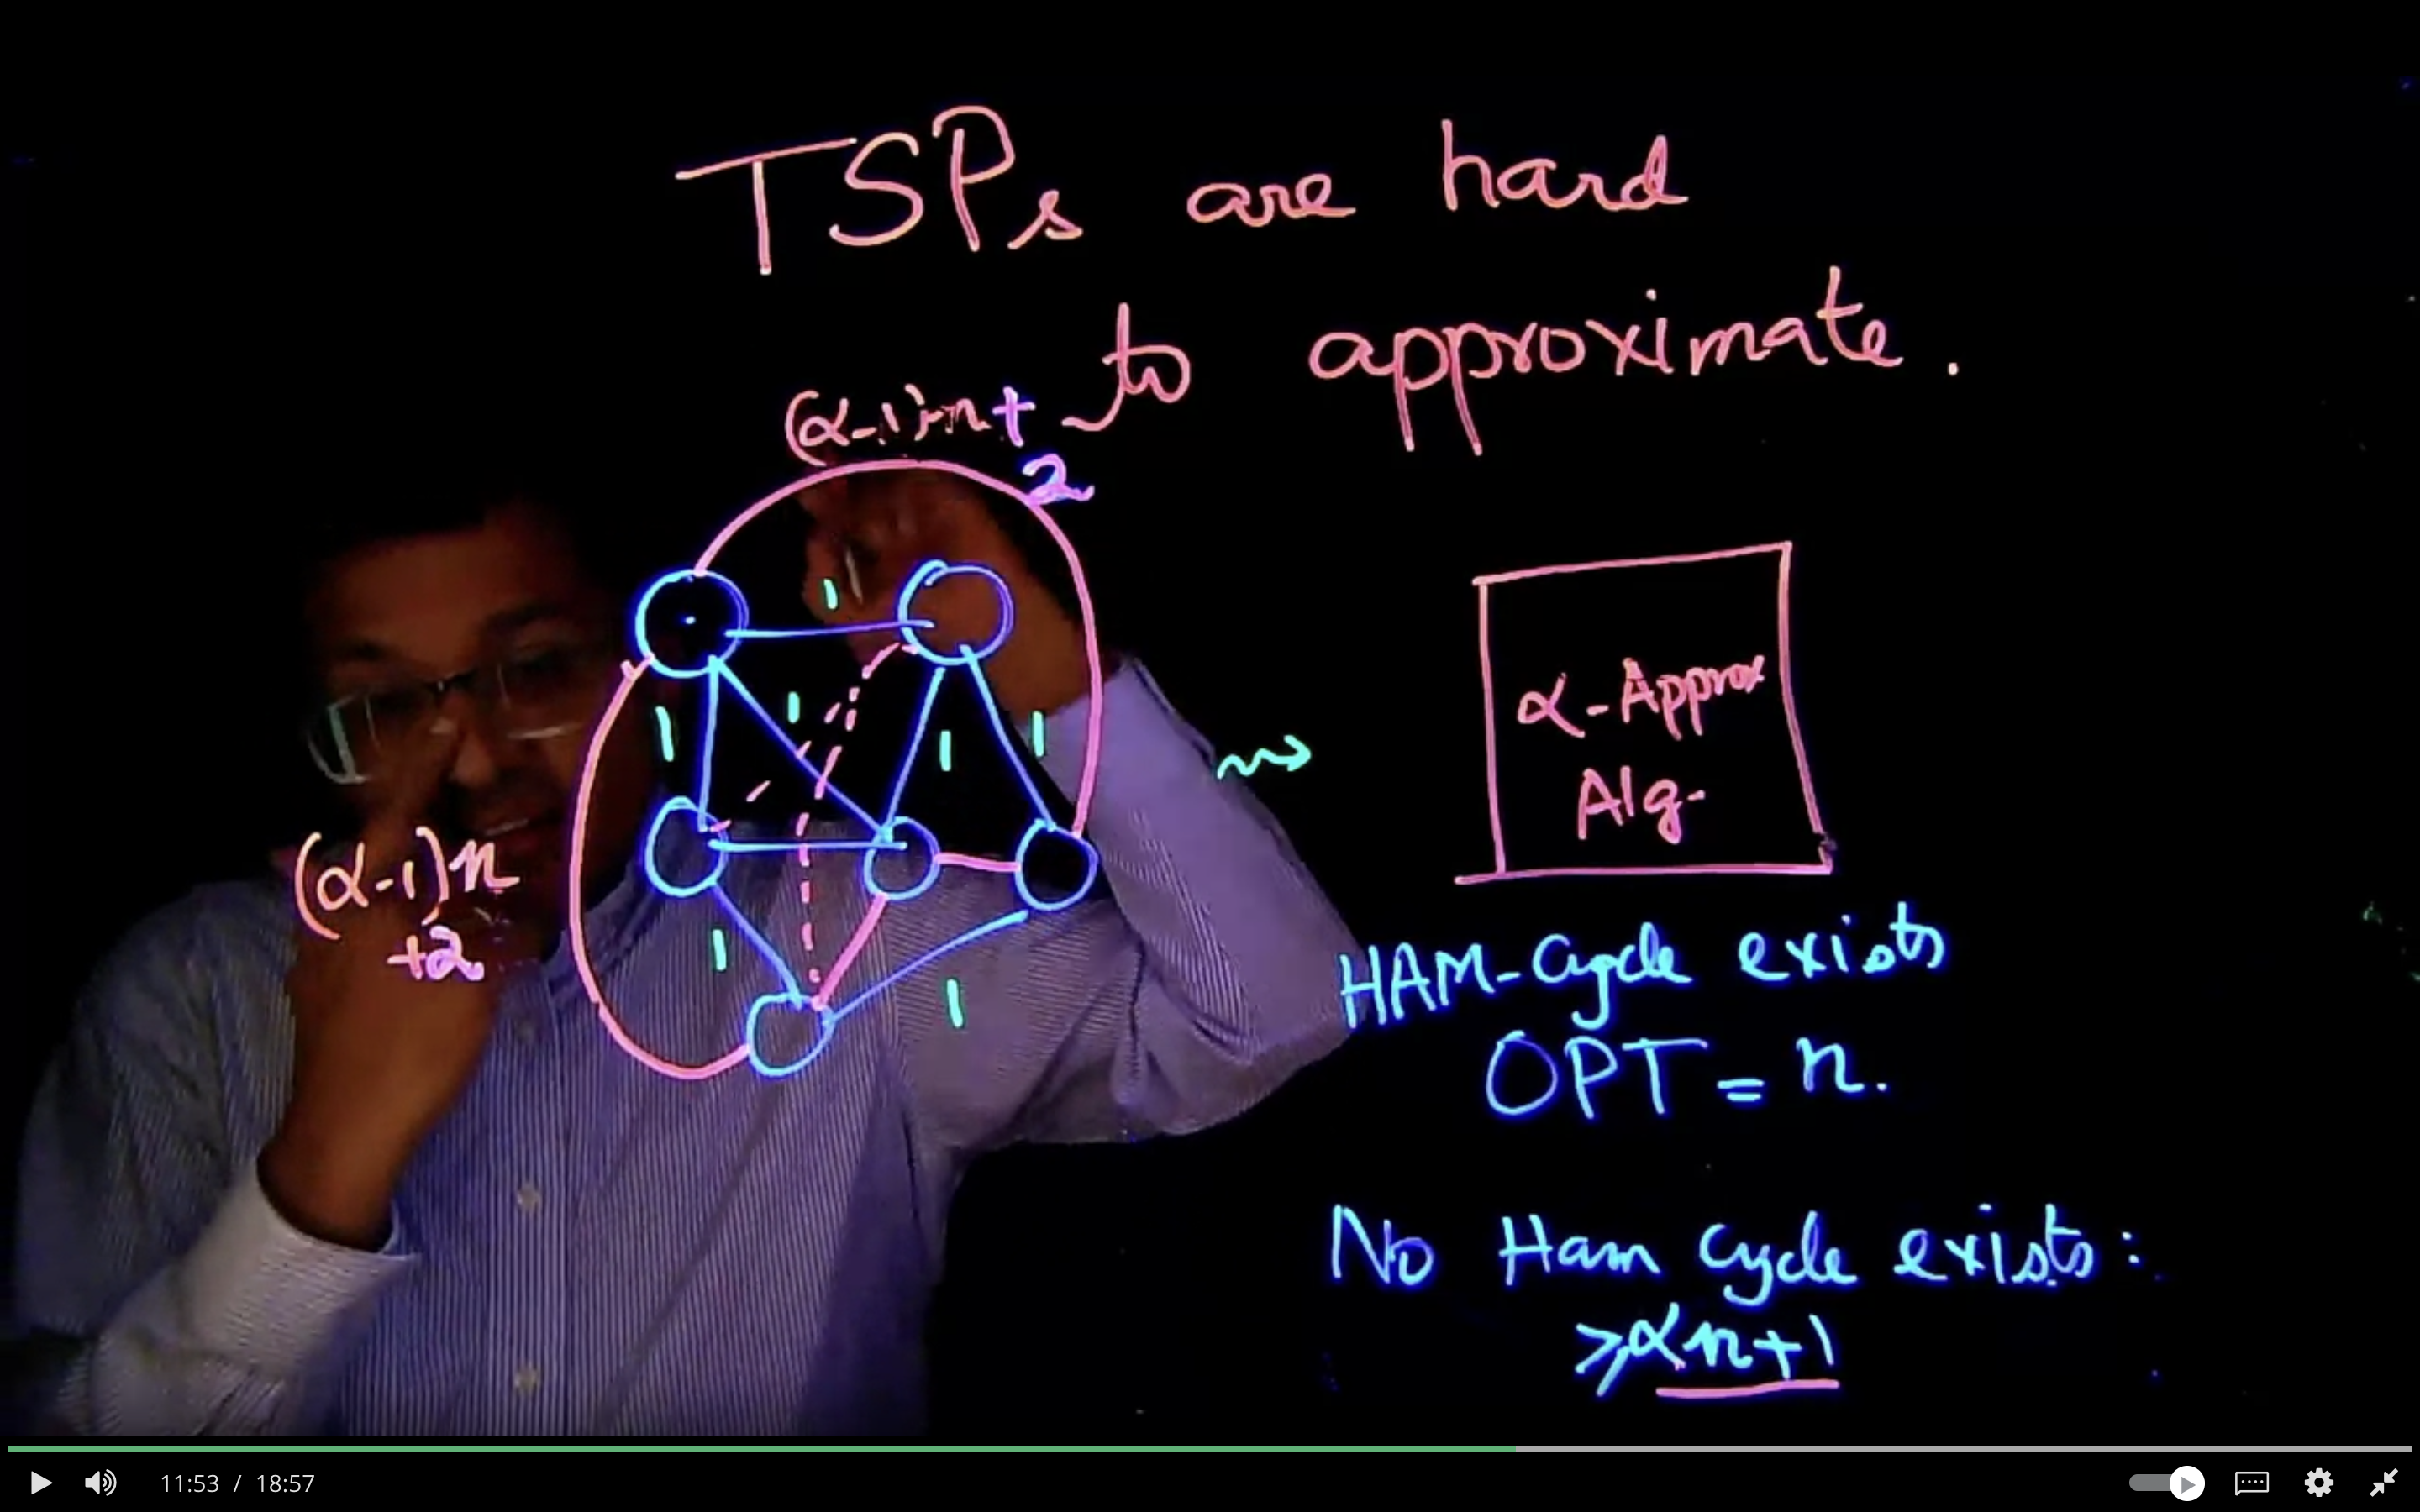 TSPs are hard
to approximate.
(α-1)·n+
2
1
1
1
1
1
(α-1)n
+2
1
1
α-Approx
Alg.
HAM-Cycle exists
OPT = n.
No Ham Cycle exists:
≥αn+1
11:53 / 18:57